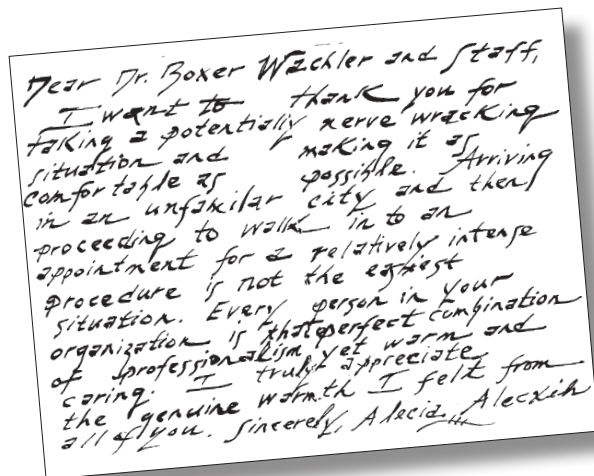 Dear Dr. Boxer Wachler and Staff,
I want to thank you for
taking a potentially nerve wracking
situation and making it as
comfortable as possible. Arriving
in an unfamiliar city and then
proceeding to walk in to an
appointment for a relatively intense
procedure is not the easiest
situation. Every person in your
organization is that perfect combination
of professionalism yet warm and
caring. I truly appreciate
the genuine warmth I felt from
all of you. Sincerely, Alecia